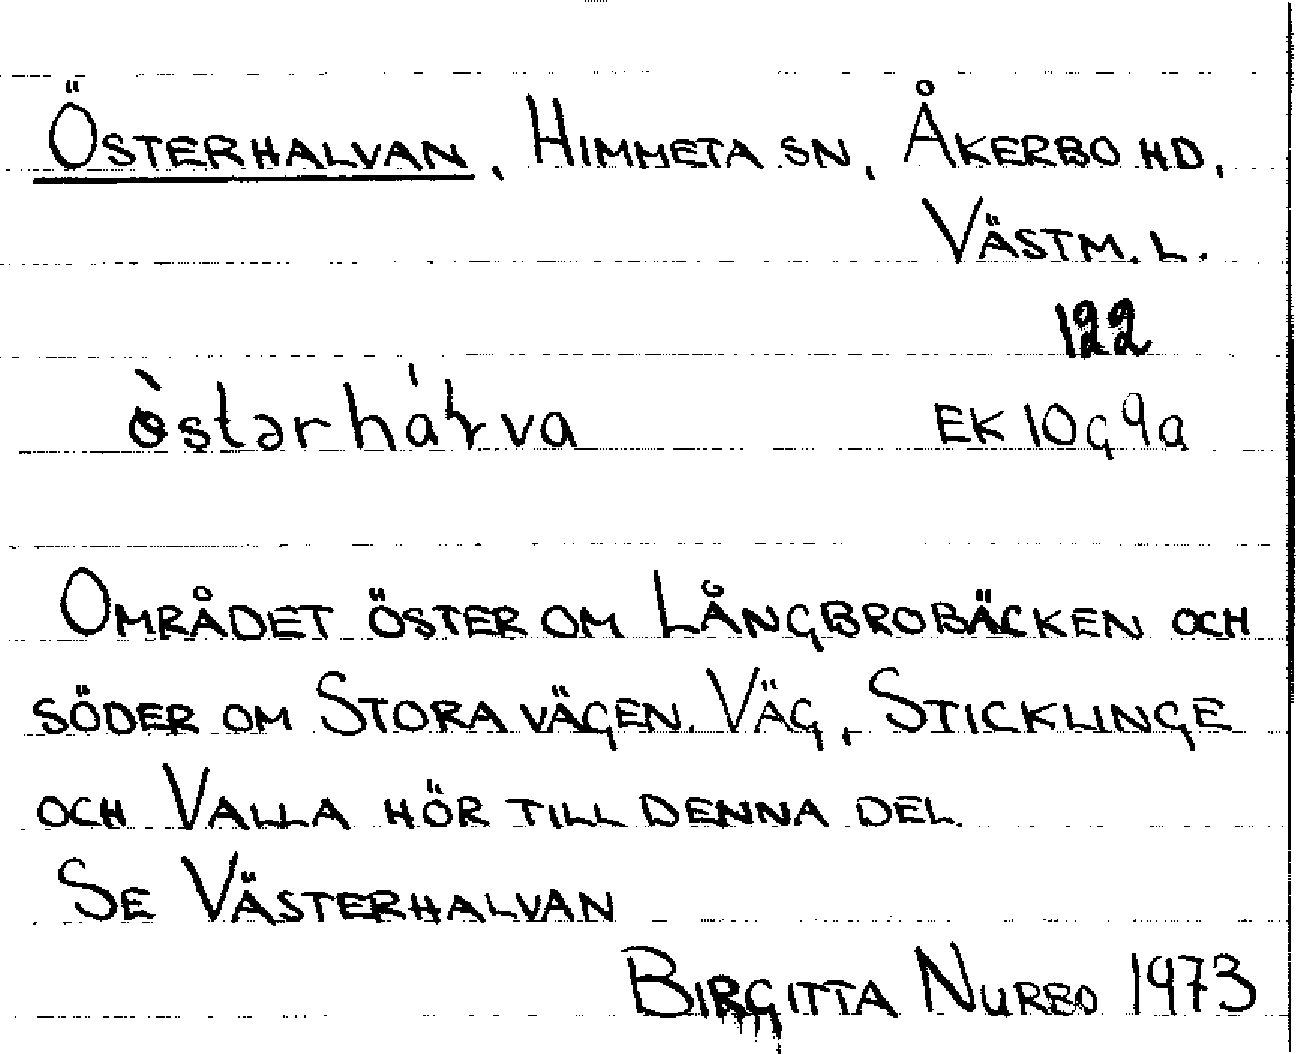 ÖSTERHALVAN, HIMMETA SN, ÅKERBO HD,
VÄSTM. L.
122
EK 10G9a
OMRÅDET ÖSTER OM LÅNGBROBÄCKEN OCH
SÖDER OM STORA VÄGEN. VÄG, STICKLINGE
OCH VALLA HÖR TILL DENNA DEL.
SE VÄSTERHALVAN
BIRGITTA NURBO 1973